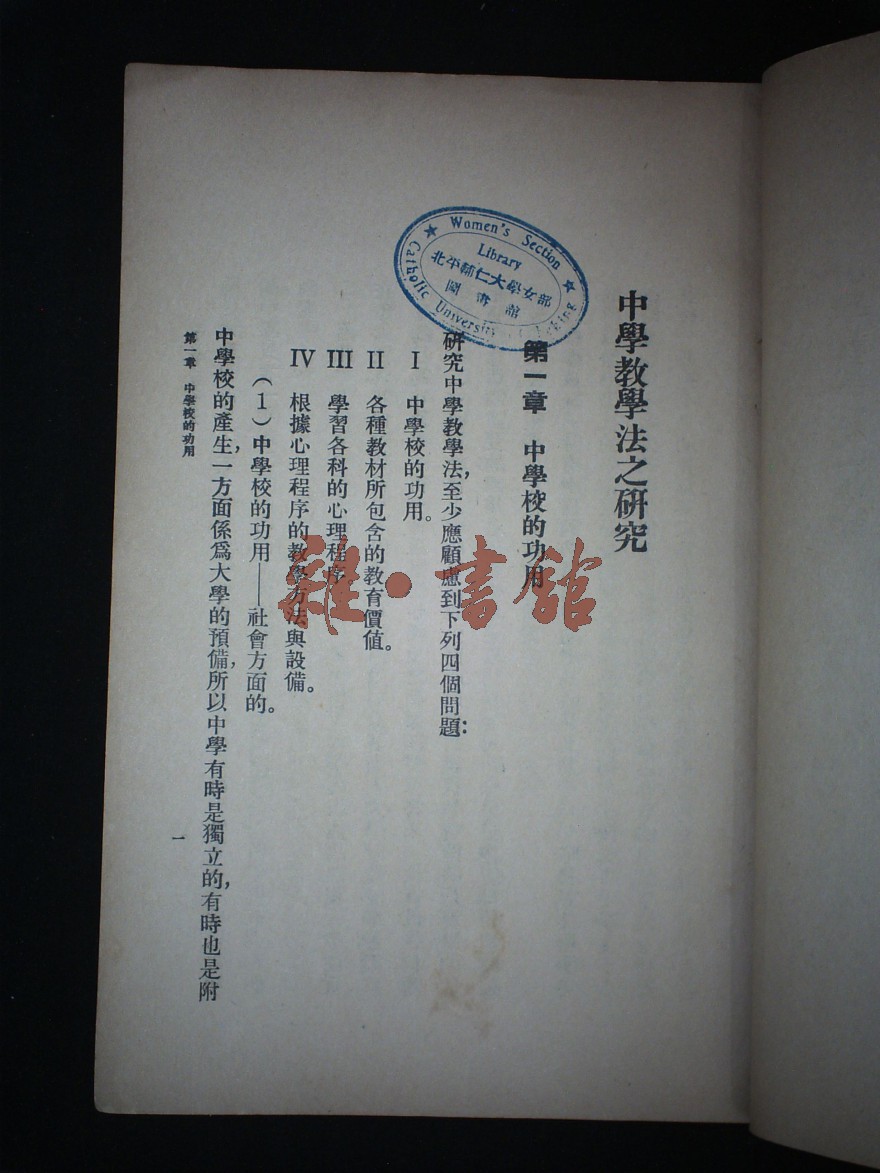 中學教學法之研究
第一章　中學校的功用
研究中學教學法，至少應顧慮到下列四個問題：
I　中學校的功用。
II　各種教材所包含的教育價值。
III　學習各科的心理程序
IV　根據心理程序的教學方法與設備。
（1）中學校的功用——社會方面的。
中學校的產生，一方面係爲大學的預備，所以中學有時是獨立的，有時也是附
第一章　中學校的功用
一
Women's Section
Library
北平輔仁大學女部
圖書館
Catholic University of Peking
雜·書館